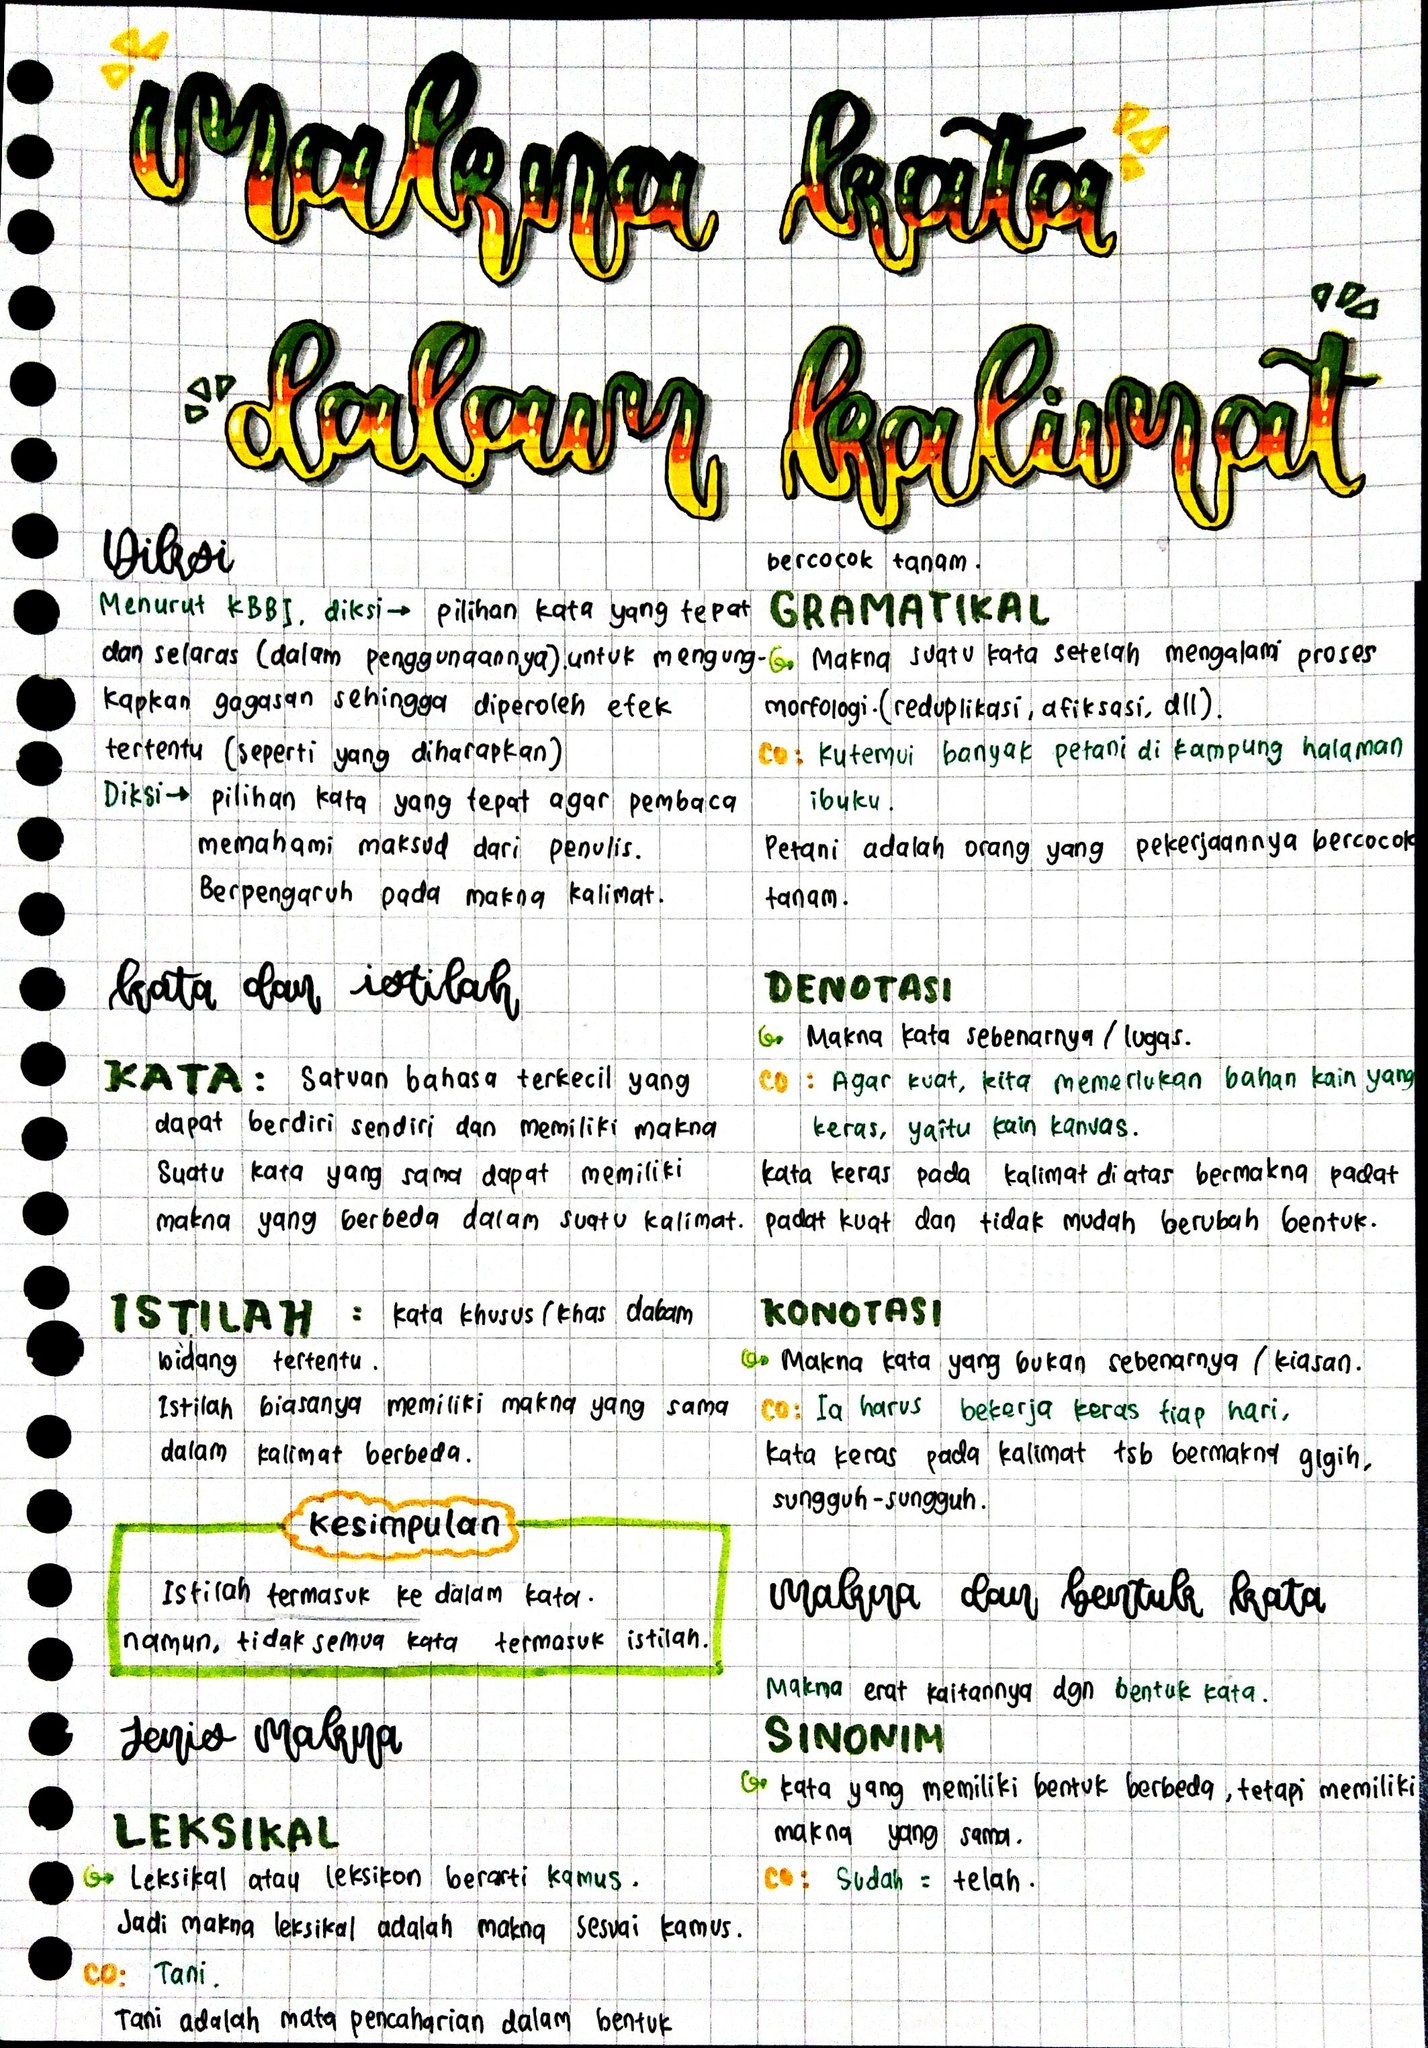 Makna kata
dalam kalimat
Diksi
Menurut KBBI, diksi → pilihan kata yang tepat
dan selaras (dalam penggunaannya) untuk mengung-
kapkan gagasan sehingga diperoleh efek
tertentu (seperti yang diharapkan)
Diksi → pilihan kata yang tepat agar pembaca
memahami maksud dari penulis.
Berpengaruh pada makna kalimat.
kata dan istilah
KATA : Satuan bahasa terkecil yang
dapat berdiri sendiri dan memiliki makna
Suatu kata yang sama dapat memiliki
makna yang berbeda dalam suatu kalimat.
ISTILAH : kata khusus/khas dalam
bidang tertentu.
Istilah biasanya memiliki makna yang sama
dalam kalimat berbeda.
Kesimpulan
Istilah termasuk ke dalam kata.
namun, tidak semua kata termasuk istilah.
Jenis Makna
LEKSIKAL
Leksikal atau leksikon berarti kamus.
Jadi makna leksikal adalah makna sesuai kamus.
CO: Tani.
Tani adalah mata pencaharian dalam bentuk
bercocok tanam.
GRAMATIKAL
Makna suatu kata setelah mengalami proses
morfologi.(reduplikasi, afiksasi, dll).
CO: Kutemui banyak petani di kampung halaman
ibuku.
Petani adalah orang yang pekerjaannya bercocok
tanam.
DENOTASI
Makna kata sebenarnya / lugas.
CO : Agar kuat, kita memerlukan bahan kain yang
keras, yaitu kain kanvas.
kata keras pada kalimat di atas bermakna padat
padat kuat dan tidak mudah berubah bentuk.
KONOTASI
Makna kata yang bukan sebenarnya / kiasan.
CO: Ia harus bekerja keras tiap hari,
kata keras pada kalimat tsb bermakna gigih,
sungguh-sungguh.
Makna dan bentuk kata
Makna erat kaitannya dgn bentuk kata.
SINONIM
kata yang memiliki bentuk berbeda, tetapi memiliki
makna yang sama.
CO: Sudah = telah.